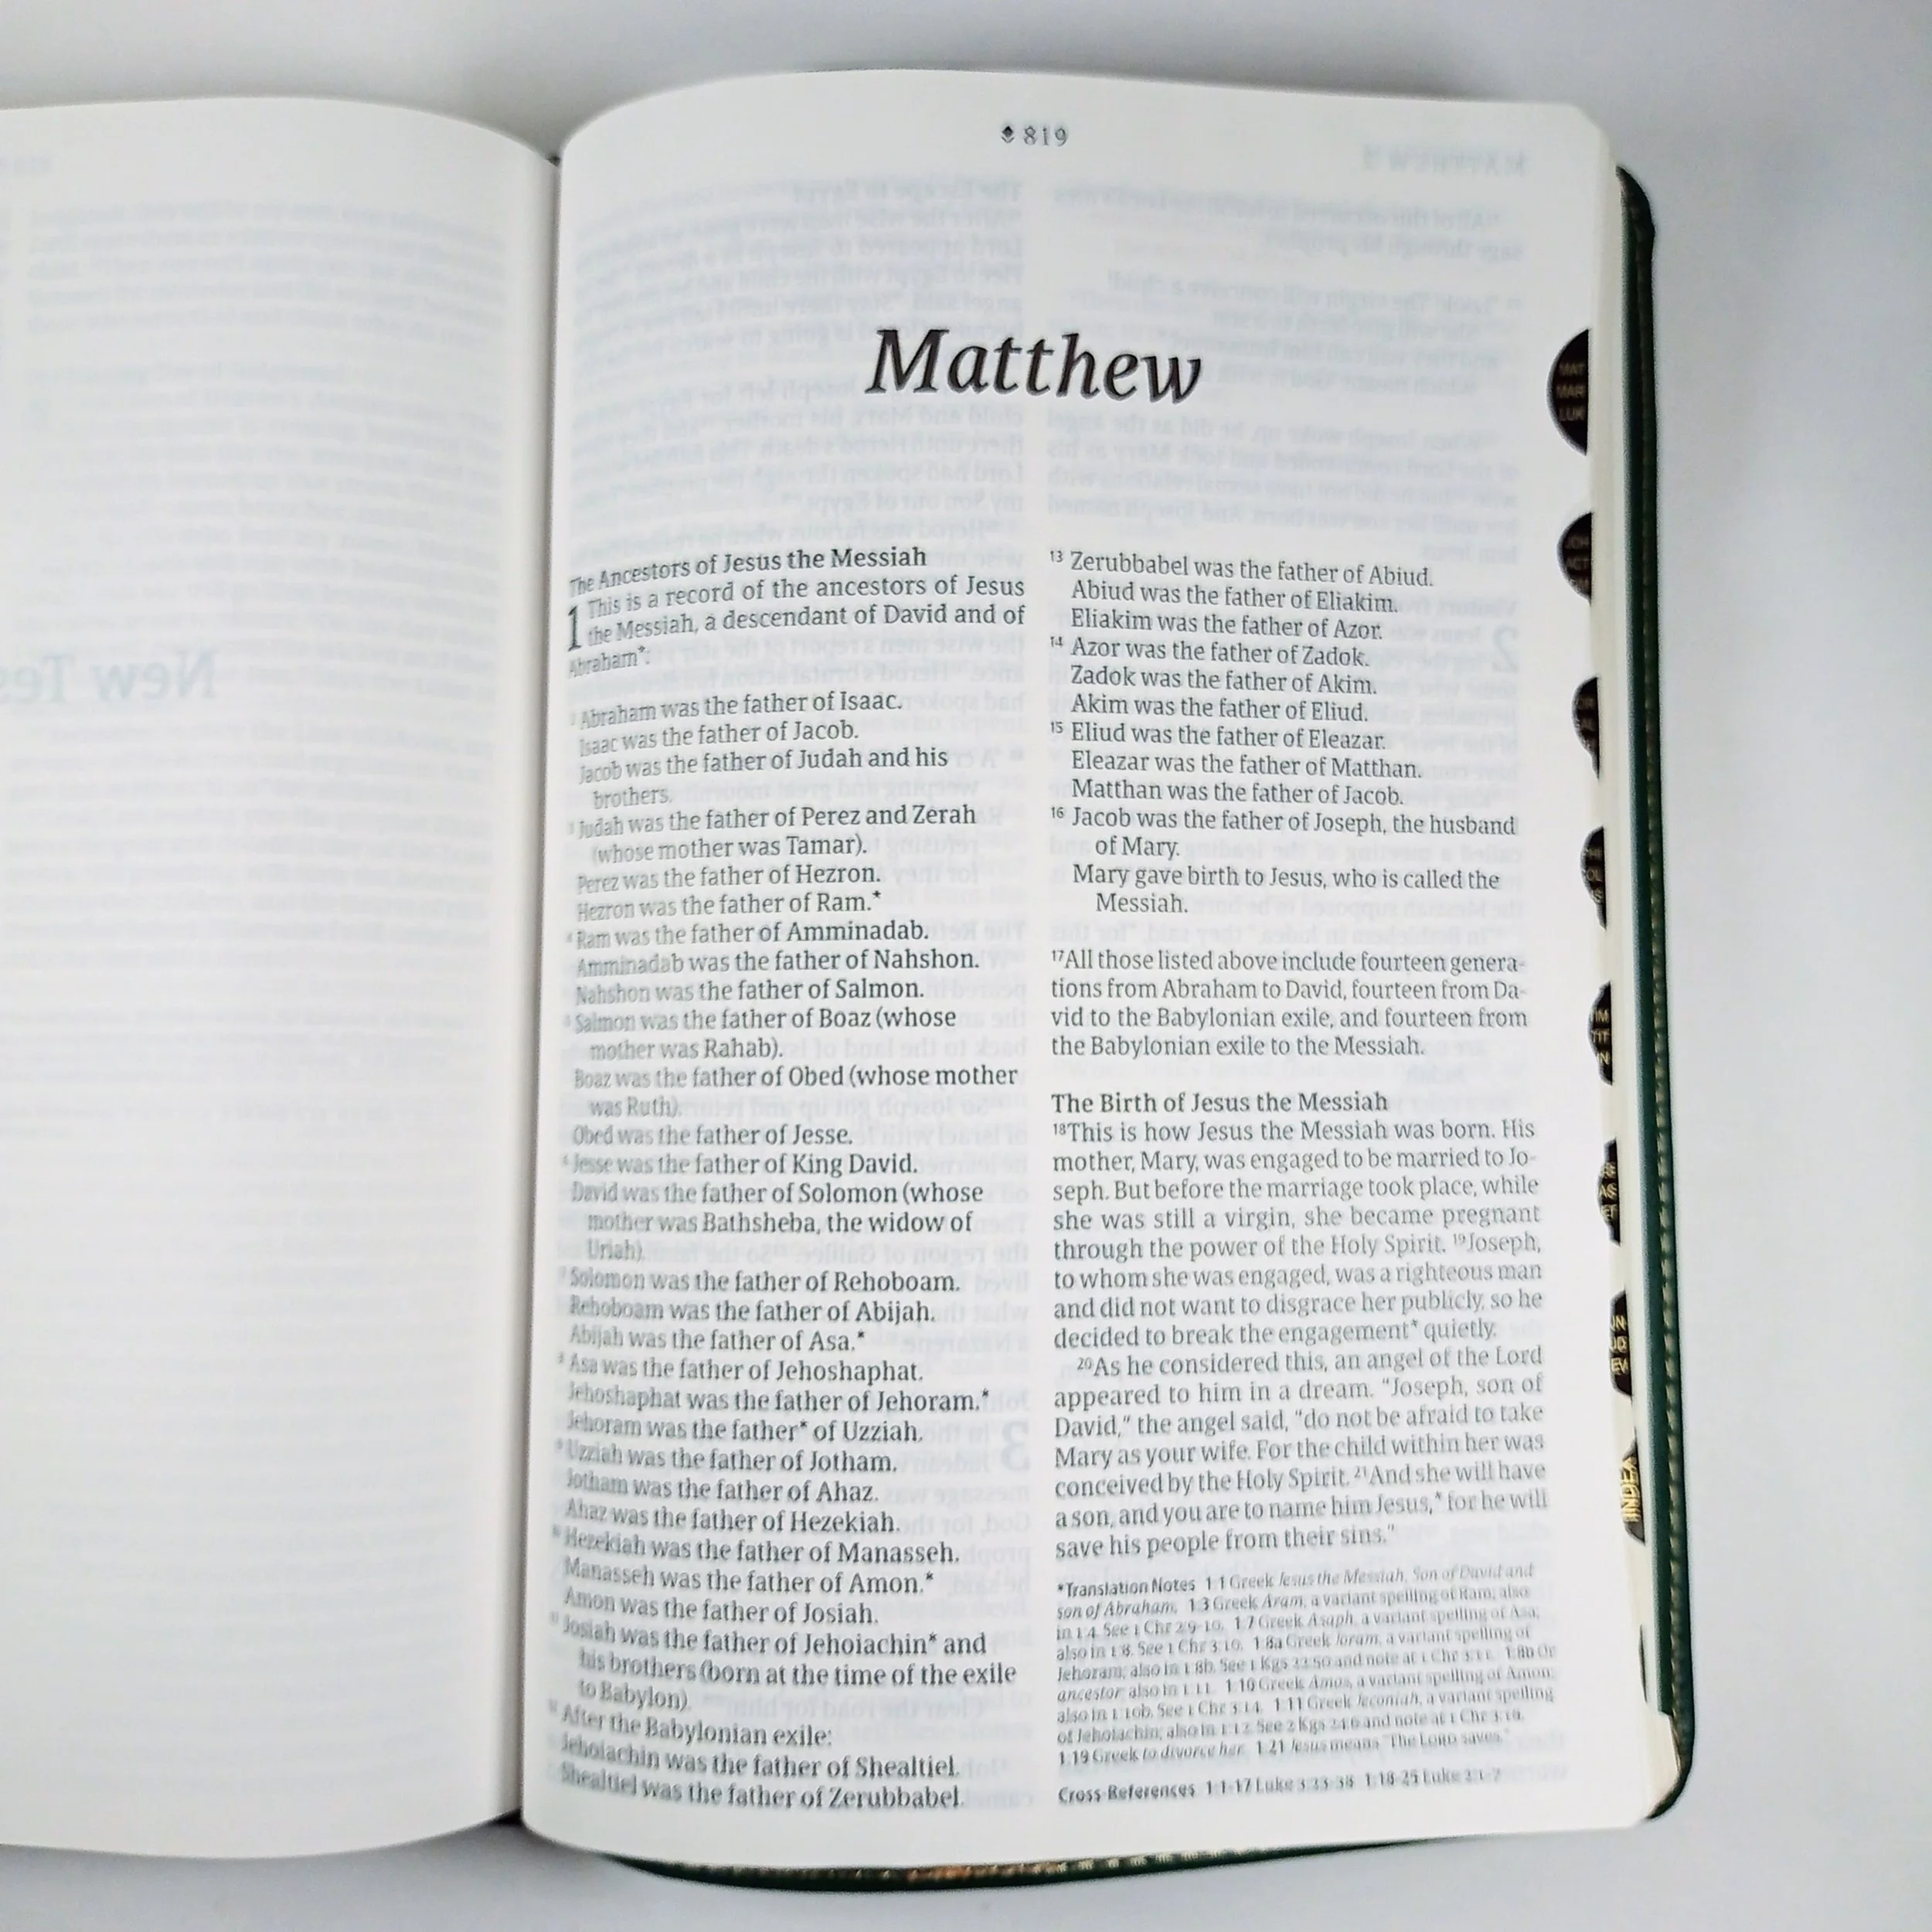 819
Matthew
The Ancestors of Jesus the Messiah
1 This is a record of the ancestors of Jesus
the Messiah, a descendant of David and of
Abraham*:
2 Abraham was the father of Isaac.
Isaac was the father of Jacob.
Jacob was the father of Judah and his
brothers.
3 Judah was the father of Perez and Zerah
(whose mother was Tamar).
Perez was the father of Hezron.
Hezron was the father of Ram.*
4 Ram was the father of Amminadab.
Amminadab was the father of Nahshon.
Nahshon was the father of Salmon.
5 Salmon was the father of Boaz (whose
mother was Rahab).
Boaz was the father of Obed (whose mother
was Ruth).
Obed was the father of Jesse.
6 Jesse was the father of King David.
David was the father of Solomon (whose
mother was Bathsheba, the widow of
Uriah).
7 Solomon was the father of Rehoboam.
Rehoboam was the father of Abijah.
Abijah was the father of Asa.*
8 Asa was the father of Jehoshaphat.
Jehoshaphat was the father of Jehoram.*
Jehoram was the father* of Uzziah.
9 Uzziah was the father of Jotham.
Jotham was the father of Ahaz.
Ahaz was the father of Hezekiah.
10 Hezekiah was the father of Manasseh.
Manasseh was the father of Amon.*
Amon was the father of Josiah.
11 Josiah was the father of Jehoiachin* and
his brothers (born at the time of the exile
to Babylon).
12 After the Babylonian exile:
Jehoiachin was the father of Shealtiel.
Shealtiel was the father of Zerubbabel.
13 Zerubbabel was the father of Abiud.
Abiud was the father of Eliakim.
Eliakim was the father of Azor.
14 Azor was the father of Zadok.
Zadok was the father of Akim.
Akim was the father of Eliud.
15 Eliud was the father of Eleazar.
Eleazar was the father of Matthan.
Matthan was the father of Jacob.
16 Jacob was the father of Joseph, the husband
of Mary.
Mary gave birth to Jesus, who is called the
Messiah.
17 All those listed above include fourteen genera-
tions from Abraham to David, fourteen from Da-
vid to the Babylonian exile, and fourteen from
the Babylonian exile to the Messiah.
The Birth of Jesus the Messiah
18 This is how Jesus the Messiah was born. His
mother, Mary, was engaged to be married to Jo-
seph. But before the marriage took place, while
she was still a virgin, she became pregnant
through the power of the Holy Spirit. 19 Joseph,
to whom she was engaged, was a righteous man
and did not want to disgrace her publicly, so he
decided to break the engagement* quietly.
20 As he considered this, an angel of the Lord
appeared to him in a dream. "Joseph, son of
David," the angel said, "do not be afraid to take
Mary as your wife. For the child within her was
conceived by the Holy Spirit. 21 And she will have
a son, and you are to name him Jesus,* for he will
save his people from their sins."
*Translation Notes 1:1 Greek Jesus the Messiah, Son of David and
son of Abraham. 1:3 Greek Aram, a variant spelling of Ram; also
in 1:4. See 1 Chr 2:9-10. 1:7 Greek Asaph, a variant spelling of Asa;
also in 1:8. See 1 Chr 3:10. 1:8a Greek Joram, a variant spelling of
Jehoram; also in 1:8b. See 1 Kgs 22:50 and note at 1 Chr 3:11. 1:8b Or
ancestor; also in 1:11. 1:10 Greek Amos, a variant spelling of Amon;
also in 1:10b. See 1 Chr 3:14. 1:11 Greek Jeconiah, a variant spelling
of Jehoiachin; also in 1:12. See 2 Kgs 24:6 and note at 1 Chr 3:16.
1:19 Greek to divorce her. 1:21 Jesus means "The LORD saves."
Cross-References 1:1-17 Luke 3:23-38 1:18-25 Luke 2:1-7
MAT
MAR
LUK
INDEX